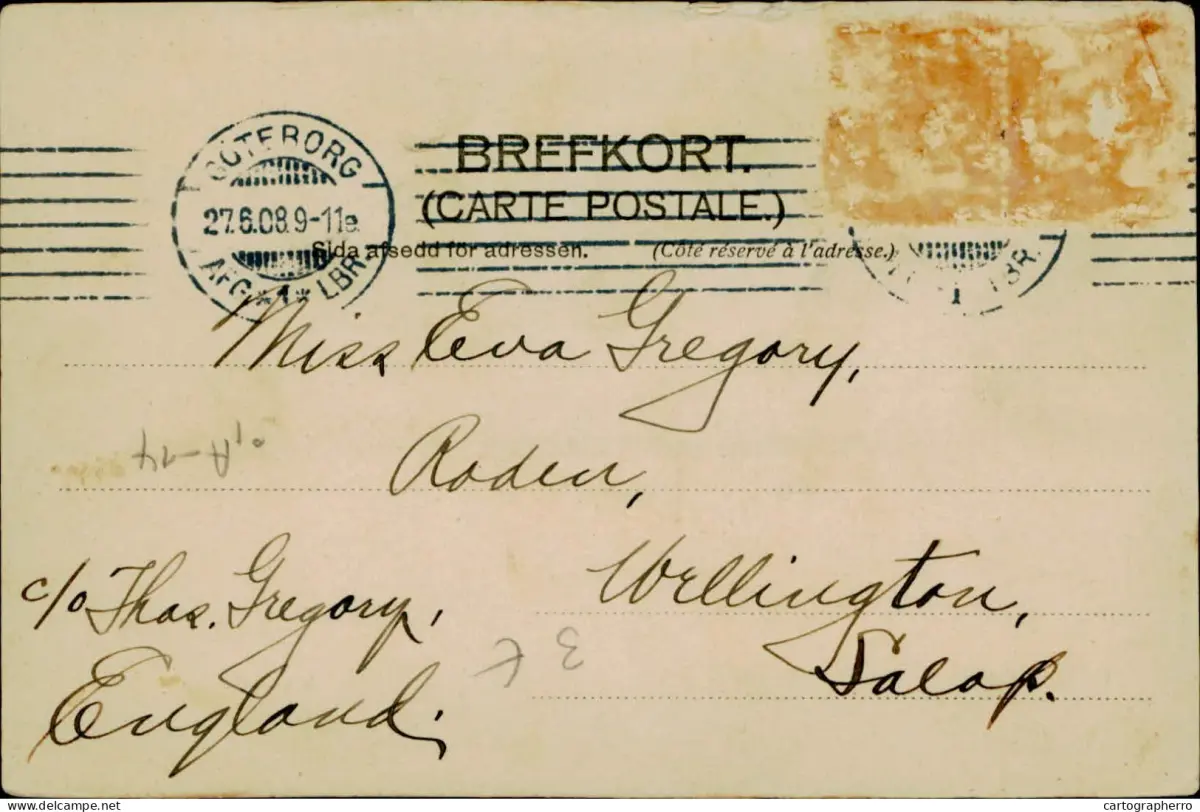 BREFKORT.
(CARTE POSTALE.)
Sida afsedd för adressen. (Côté réservé à l'adresse.)
GÖTEBORG
27.6.08.9-11e.
AFG. *1* LBR.
1 LBR.
Miss Eva Gregory,
Roden,
Wellington,
Salop.
c/o Thos. Gregory,
England.
delcampe.net
cartographerro